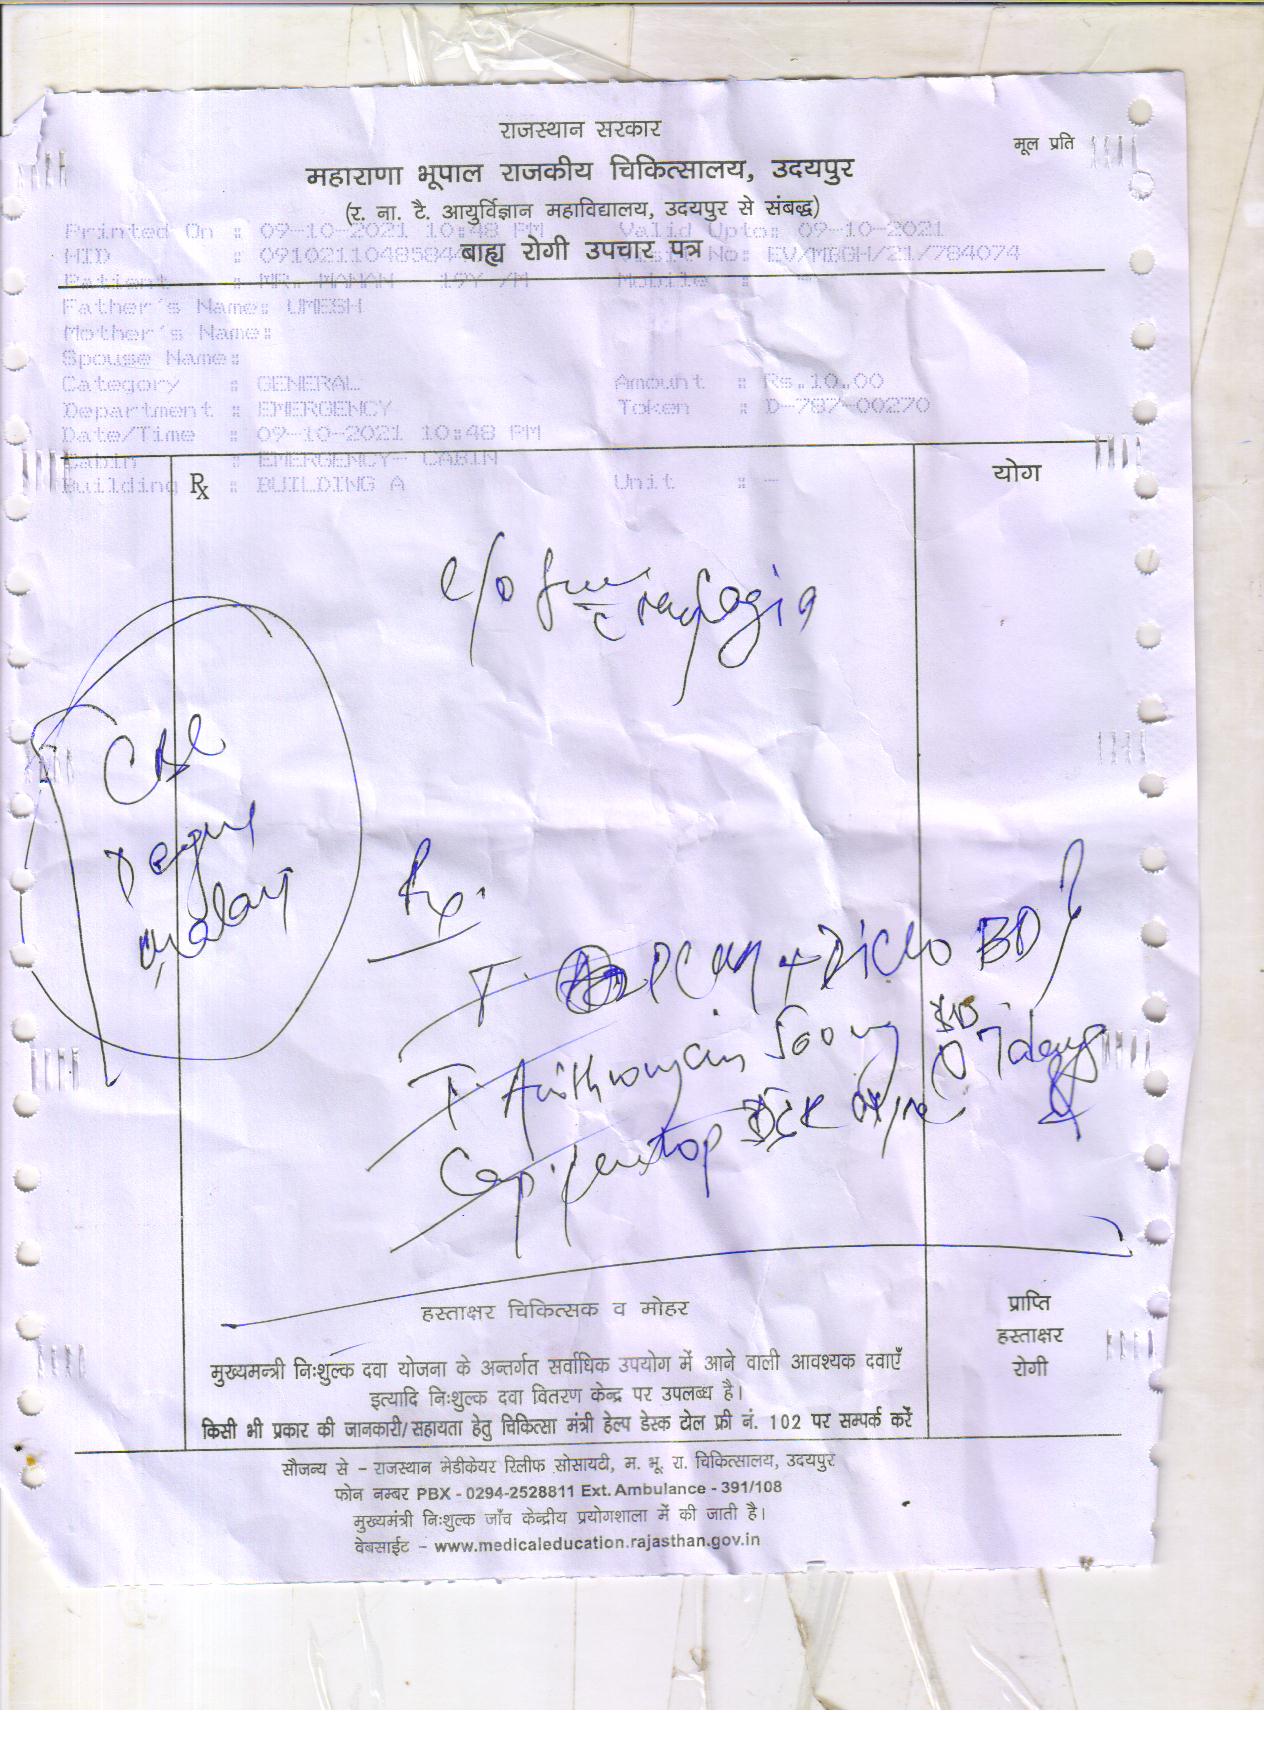 राजस्थान सरकार
मूल प्रति
महाराणा भूपाल राजकीय चिकित्सालय, उदयपुर
(र. ना. टै. आयुर्विज्ञान महाविद्यालय, उदयपुर से संबद्ध)
Printed On : 09-10-2021 10:48 PM Valid Upto: 09-10-2021
बाह्य रोगी उपचार पत्र
HID : 0910211048584 No: EV/MBGH/21/784074
Patient : MR. MANAN 19Y /M Mobile : -
Father's Name: UMESH
Mother's Name:
Spouse Name:
Category : GENERAL Amount : Rs.10.00
Department : EMERGENCY Token : D-787-00270
Date/Time : 09-10-2021 10:48 PM
Cabin : EMERGENCY- CABIN
Building : BUILDING A Unit : -
Rx
योग
c/o
CBC
Rx.
T. PCM + Diclo BD
T. Azithromycin 500mg 7 days
Cap.
हस्ताक्षर चिकित्सक व मोहर
प्राप्ति
हस्ताक्षर
रोगी
मुख्यमन्त्री निःशुल्क दवा योजना के अन्तर्गत सर्वाधिक उपयोग में आने वाली आवश्यक दवाएँ
इत्यादि निःशुल्क दवा वितरण केन्द्र पर उपलब्ध है।
किसी भी प्रकार की जानकारी/सहायता हेतु चिकित्सा मंत्री हेल्प डेस्क टोल फ्री नं. 102 पर सम्पर्क करें
सौजन्य से - राजस्थान मेडीकेयर रिलीफ सोसायटी, म. भू. रा. चिकित्सालय, उदयपुर
फोन नम्बर PBX - 0294-2528811 Ext. Ambulance - 391/108
मुख्यमंत्री निःशुल्क जाँच केन्द्रीय प्रयोगशाला में की जाती है।
वेबसाईट - www.medicaleducation.rajasthan.gov.in